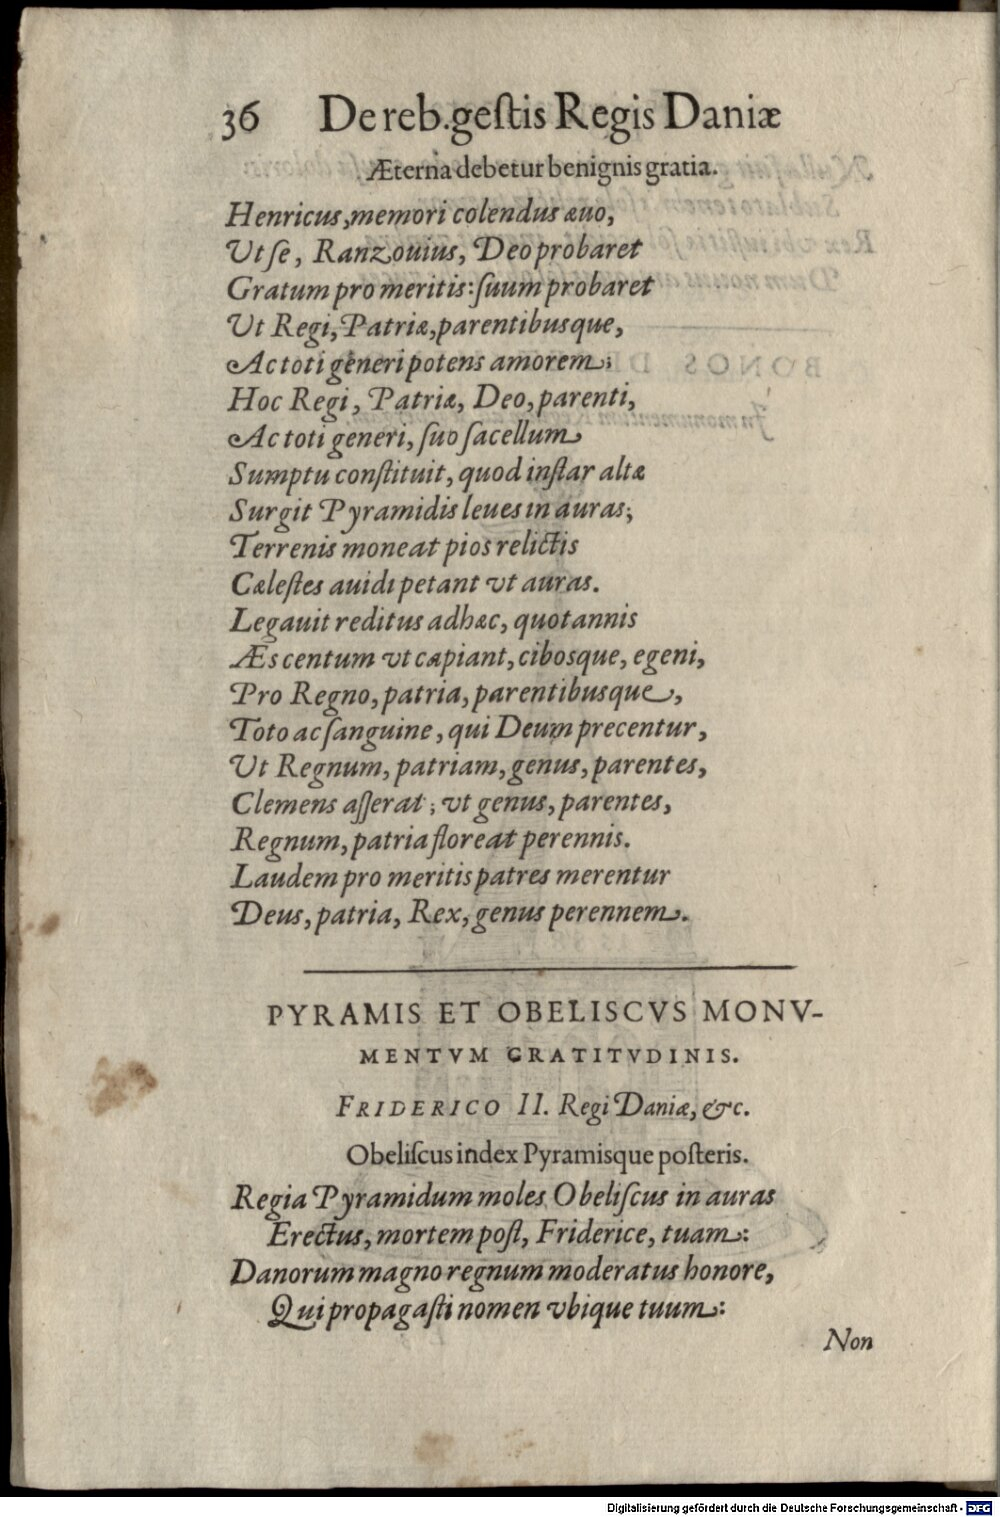 36 De reb. gestis Regis Daniæ
Æterna debetur benignis gratia.
Henricus, memori colendus æuo,
Ut se, Ranzouius, Deo probaret
Gratum pro meritis: suum probaret
Ut Regi, Patriæ, parentibusque,
Ac toti generi potens amorem;
Hoc Regi, Patriæ, Deo, parenti,
Ac toti generi, suo sacellum
Sumptu constituit, quod instar altæ
Surgit Pyramidis leues in auras;
Terrenis moneat pios relictis
Cælestes auidi petant vt auras.
Legauit reditus adhæc, quotannis
Æs centum vt capiant, cibosque, egeni,
Pro Regno, patria, parentibusque,
Toto ac sanguine, qui Deum precentur,
Ut Regnum, patriam, genus, parentes,
Clemens asserat; vt genus, parentes,
Regnum, patria floreat perennis.
Laudem pro meritis patres merentur
Deus, patria, Rex, genus perennem.
PYRAMIS ET OBELISCVS MONV-
MENTVM GRATITVDINIS.
FRIDERICO II. Regi Daniæ, &c.
Obeliscus index Pyramisque posteris.
Regia Pyramidum moles Obeliscus in auras
Erectus, mortem post, Friderice, tuam:
Danorum magno regnum moderatus honore,
Qui propagasti nomen vbique tuum:
Non
Digitalisierung gefördert durch die Deutsche Forschungsgemeinschaft - DFG